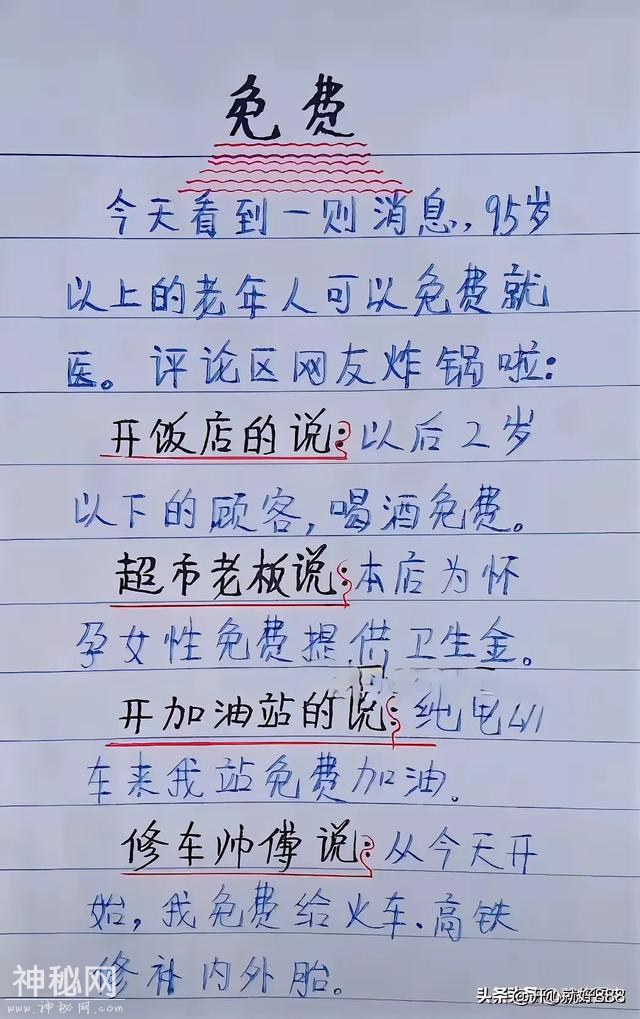 免费
今天看到一则消息，95岁
以上的老年人可以免费就
医。评论区网友炸锅啦：
开饭店的说：以后2岁
以下的顾客，喝酒免费。
超市老板说：本店为怀
孕女性免费提供卫生金。
开加油站的说：纯电
车来我站免费加油。
修车帅傅说：从今天开
始，我免费给火车、高铁
修补内外胎。
神秘网
www.神秘网.com
头条 @开心就好888